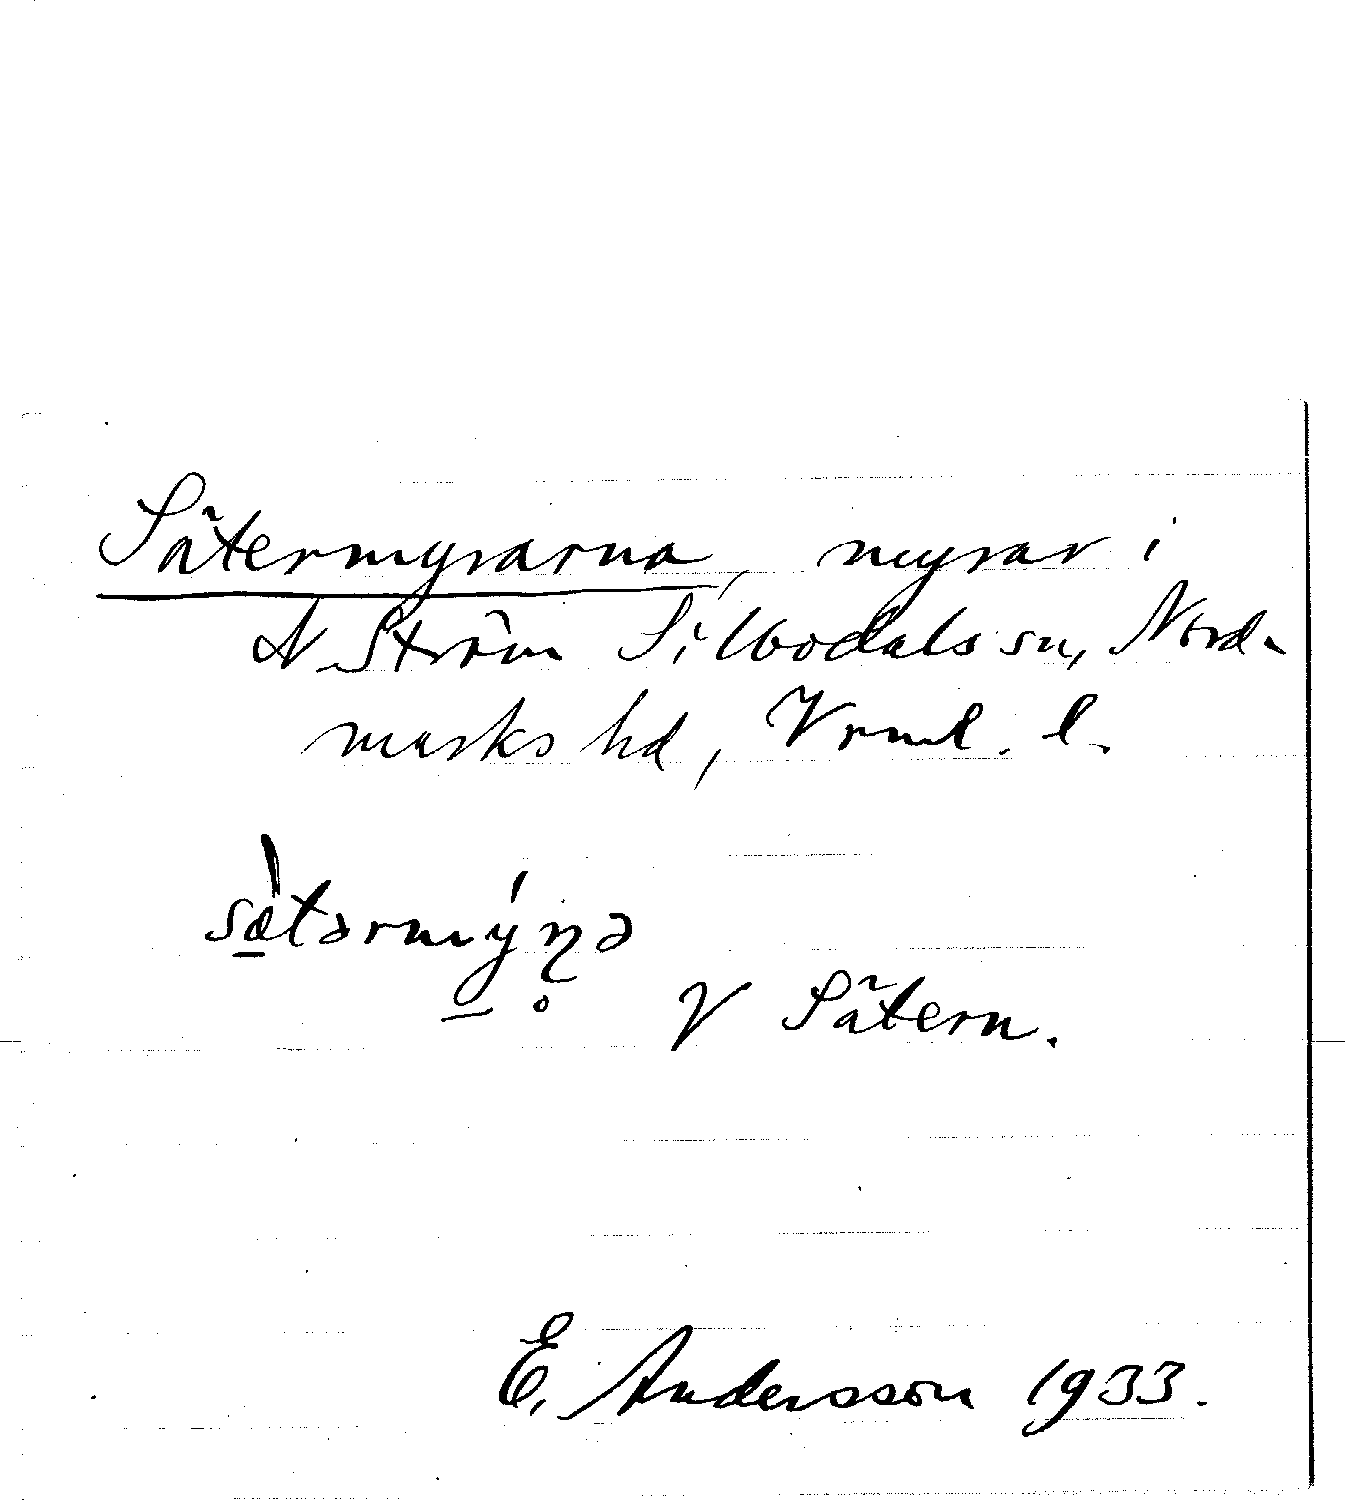 Sätermyrarna, myrar i
N. Ström Silbodals sn, Nord-
marks hd, Vrml. l.
sæ̠̀tərmý̠ŋ̥ə
V Sätern.
E. Andersson 1933.